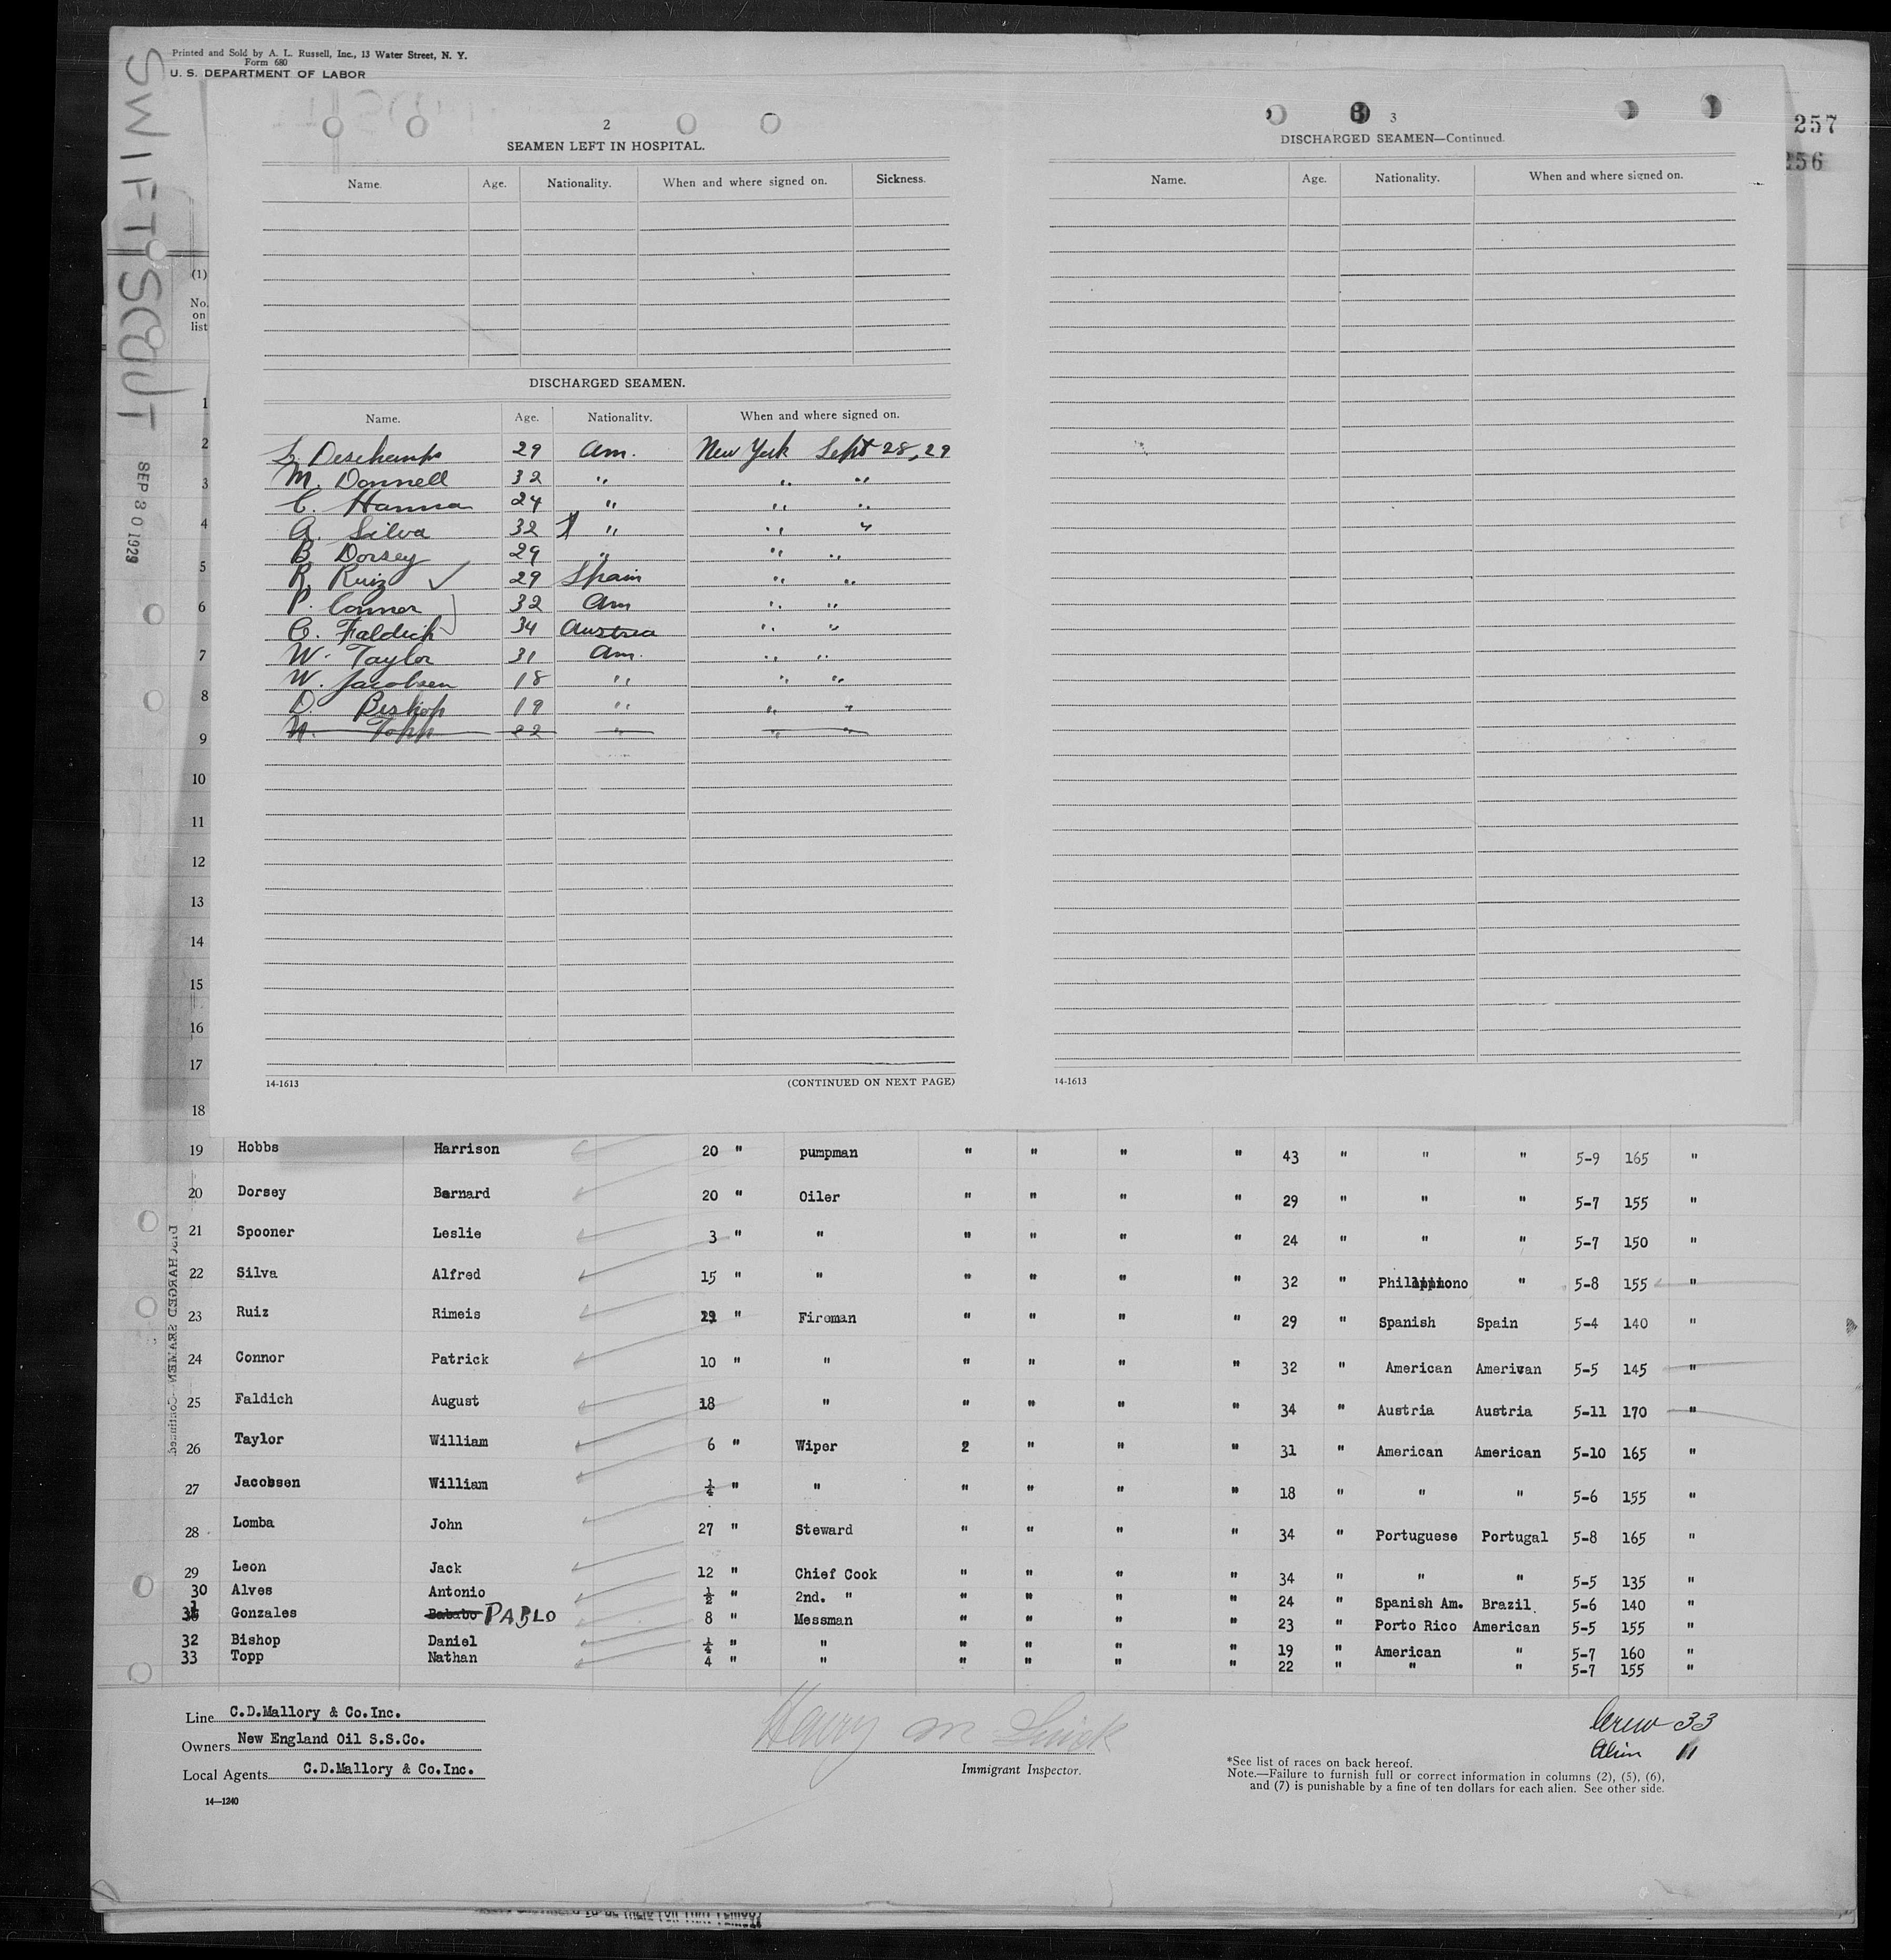 Printed and Sold by A. L. Russell, Inc., 13 Water Street, N. Y.
Form 680
U. S. DEPARTMENT OF LABOR
SWIFTSCOUT
SEP 30 1929
257
256
(1)
No. on list
2
SEAMEN LEFT IN HOSPITAL.
Name. Age. Nationality. When and where signed on. Sickness.
DISCHARGED SEAMEN.
Name. Age. Nationality. When and where signed on.
L. Deschamps 29 Am. New York Sept 28, 29
M. Donnell 32 " " "
C. Hanna 24 " " "
A. Silva 32 " " "
B. Dorsey 29 " " "
R. Ruiz ✓ 29 Spain " "
P. Connor 32 Am " "
C. Faldich 34 Austria " "
W. Taylor 31 Am. " "
W. Jacobsen 18 " " "
D. Bishop 19 " " "
N. Topp 22 " " "
14-1613 (CONTINUED ON NEXT PAGE)
3
DISCHARGED SEAMEN—Continued.
Name. Age. Nationality. When and where signed on.
14-1613
1
2
3
4
5
6
7
8
9
10
11
12
13
14
15
16
17
18
19 Hobbs Harrison 20 " pumpman " " " " 43 " " " 5-9 165 "
20 Dorsey Bernard 20 " Oiler " " " " 29 " " " 5-7 155 "
21 Spooner Leslie 3 " " " " " " 24 " " " 5-7 150 "
22 Silva Alfred 15 " " " " " " 32 " " 5-8 155 "
23 Ruiz Rimeis " Fireman " " " " 29 " Spanish Spain 5-4 140 "
24 Connor Patrick 10 " " " " " " 32 " American Amerivan 5-5 145 "
25 Faldich August 18 " " " " " 34 " Austria Austria 5-11 170 "
26 Taylor William 6 " Wiper 2 " " " 31 " American American 5-10 165 "
27 Jacobsen William ¼ " " " " " " 18 " " " 5-6 155 "
28 Lomba John 27 " Steward " " " " 34 " Portuguese Portugal 5-8 165 "
29 Leon Jack 12 " Chief Cook " " " " 34 " " " 5-5 135 "
30 Alves Antonio ½ " 2nd. " " " " " 24 " Spanish Am. Brazil 5-6 140 "
31 Gonzales Bababo PABLO 8 " Messman " " " " 23 " Porto Rico American 5-5 155 "
32 Bishop Daniel ¼ " " " " " " 19 " American " 5-7 160 "
33 Topp Nathan 4 " " " " " " 22 " " " 5-7 155 "
DISCHARGED SEAMEN—Continued.
Line C.D.Mallory & Co.Inc.
Owners New England Oil S.S.Co.
Local Agents C.D.Mallory & Co.Inc.
14—1240
Immigrant Inspector.
Crew 33
Alien 11
*See list of races on back hereof.
Note.—Failure to furnish full or correct information in columns (2), (5), (6),
and (7) is punishable by a fine of ten dollars for each alien. See other side.